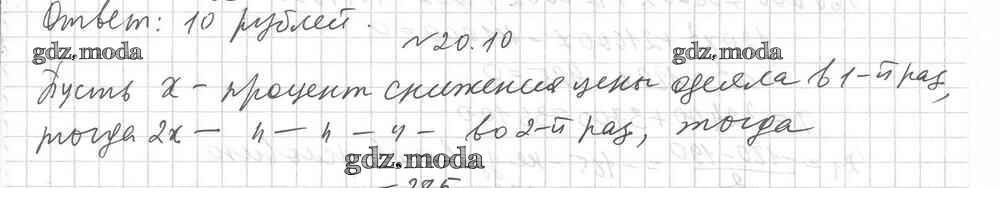 Ответ: 10 рублей.
№20.10
gdz.moda gdz.moda
Пусть x - процент снижения цены одеяла в 1-й раз,
тогда 2x — ч — ч — ч — во 2-й раз, тогда
gdz.moda